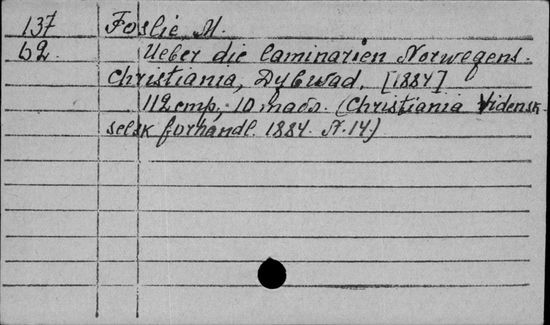 137 Foslie, M.
62. Ueber die Laminarien Norwegens.
Christiania, Dybwad, [1884]
112 стр., 10 табл. (Christiania Vidensk-
selsk forhandl. 1884. N. 14)